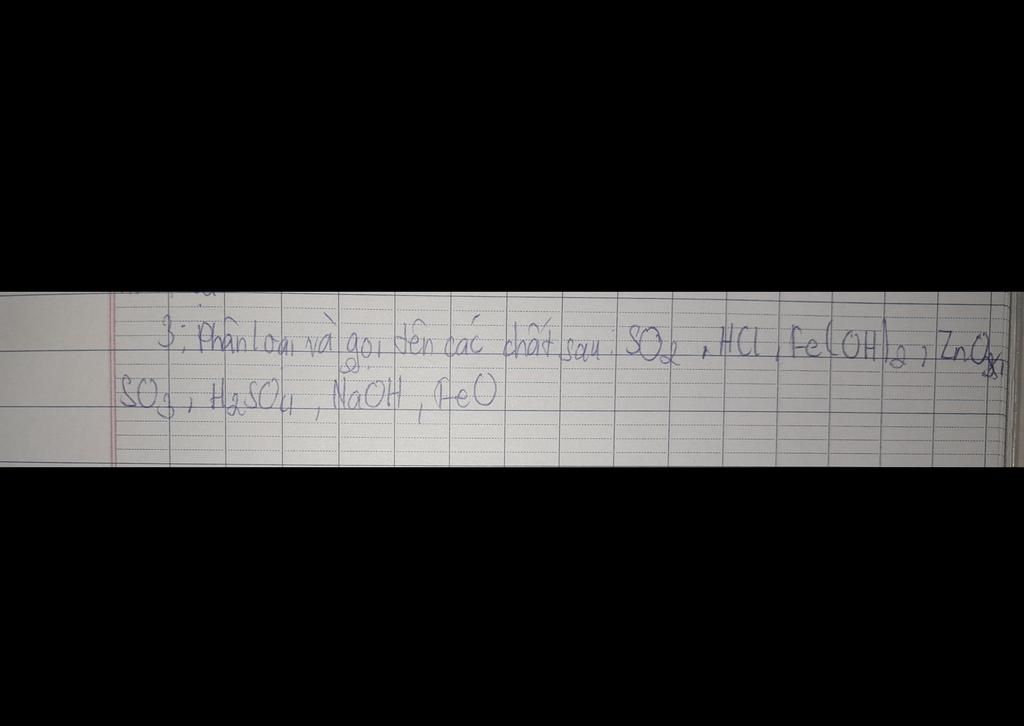 3: Phân loại và gọi tên các chất sau: SO2, HCl, Fe(OH)2, ZnO,
SO3, H2SO4, NaOH, FeO